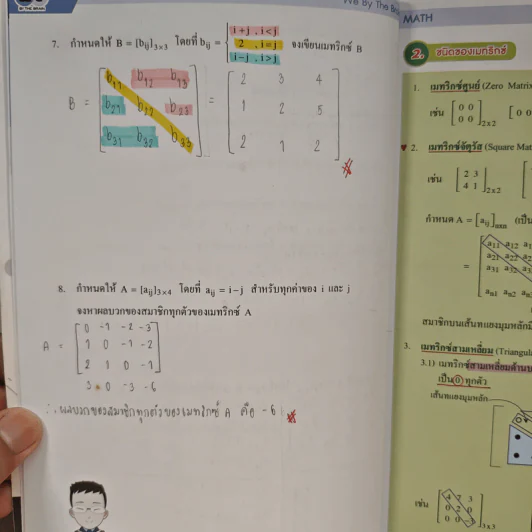 We By The Brain
BY THE BRAIN
7. กำหนดให้ B = [bij]3×3 โดยที่ bij = { i+j , i<j
2 , i=j
i-j , i>j
จงเขียนเมทริกซ์ B
B = [ b11 b12 b13 ] = [ 2 3 4 ]
[ b21 b22 b23 ] [ 1 2 5 ]
[ b31 b32 b33 ] [ 2 1 2 ]
8. กำหนดให้ A = [aij]3×4 โดยที่ aij = i-j สำหรับทุกค่าของ i และ j
จงหาผลบวกของสมาชิกทุกตัวของเมทริกซ์ A
A = [ 0 -1 -2 -3 ]
[ 1 0 -1 -2 ]
[ 2 1 0 -1 ]
3 0 -3 -6
∴ ผลบวกของสมาชิกทุกตัวของเมทริกซ์ A คือ -6
MATH
2. ชนิดของเมทริกซ์
1. เมทริกซ์ศูนย์ (Zero Matrix
เช่น [ 0 0 ]
[ 0 0 ]2×2 [ 0 0
2. เมทริกซ์จัตุรัส (Square Mat
เช่น [ 2 3 ]
[ 4 1 ]2×2
กำหนด A = [aij]n×n (เป็น
= [ a11 a12 a1
a21 a22 a2
a31 a32 a3
an1 an2 an
สมาชิกบนเส้นทแยงมุมหลักมี
3. เมทริกซ์สามเหลี่ยม (Triangula
3.1) เมทริกซ์สามเหลี่ยมด้านบ
เป็น 0 ทุกตัว
เส้นทแยงมุมหลัก
เช่น [ 4 7 3 ]
[ 0 2 0 ]
[ 0 0 -5 ]3×3